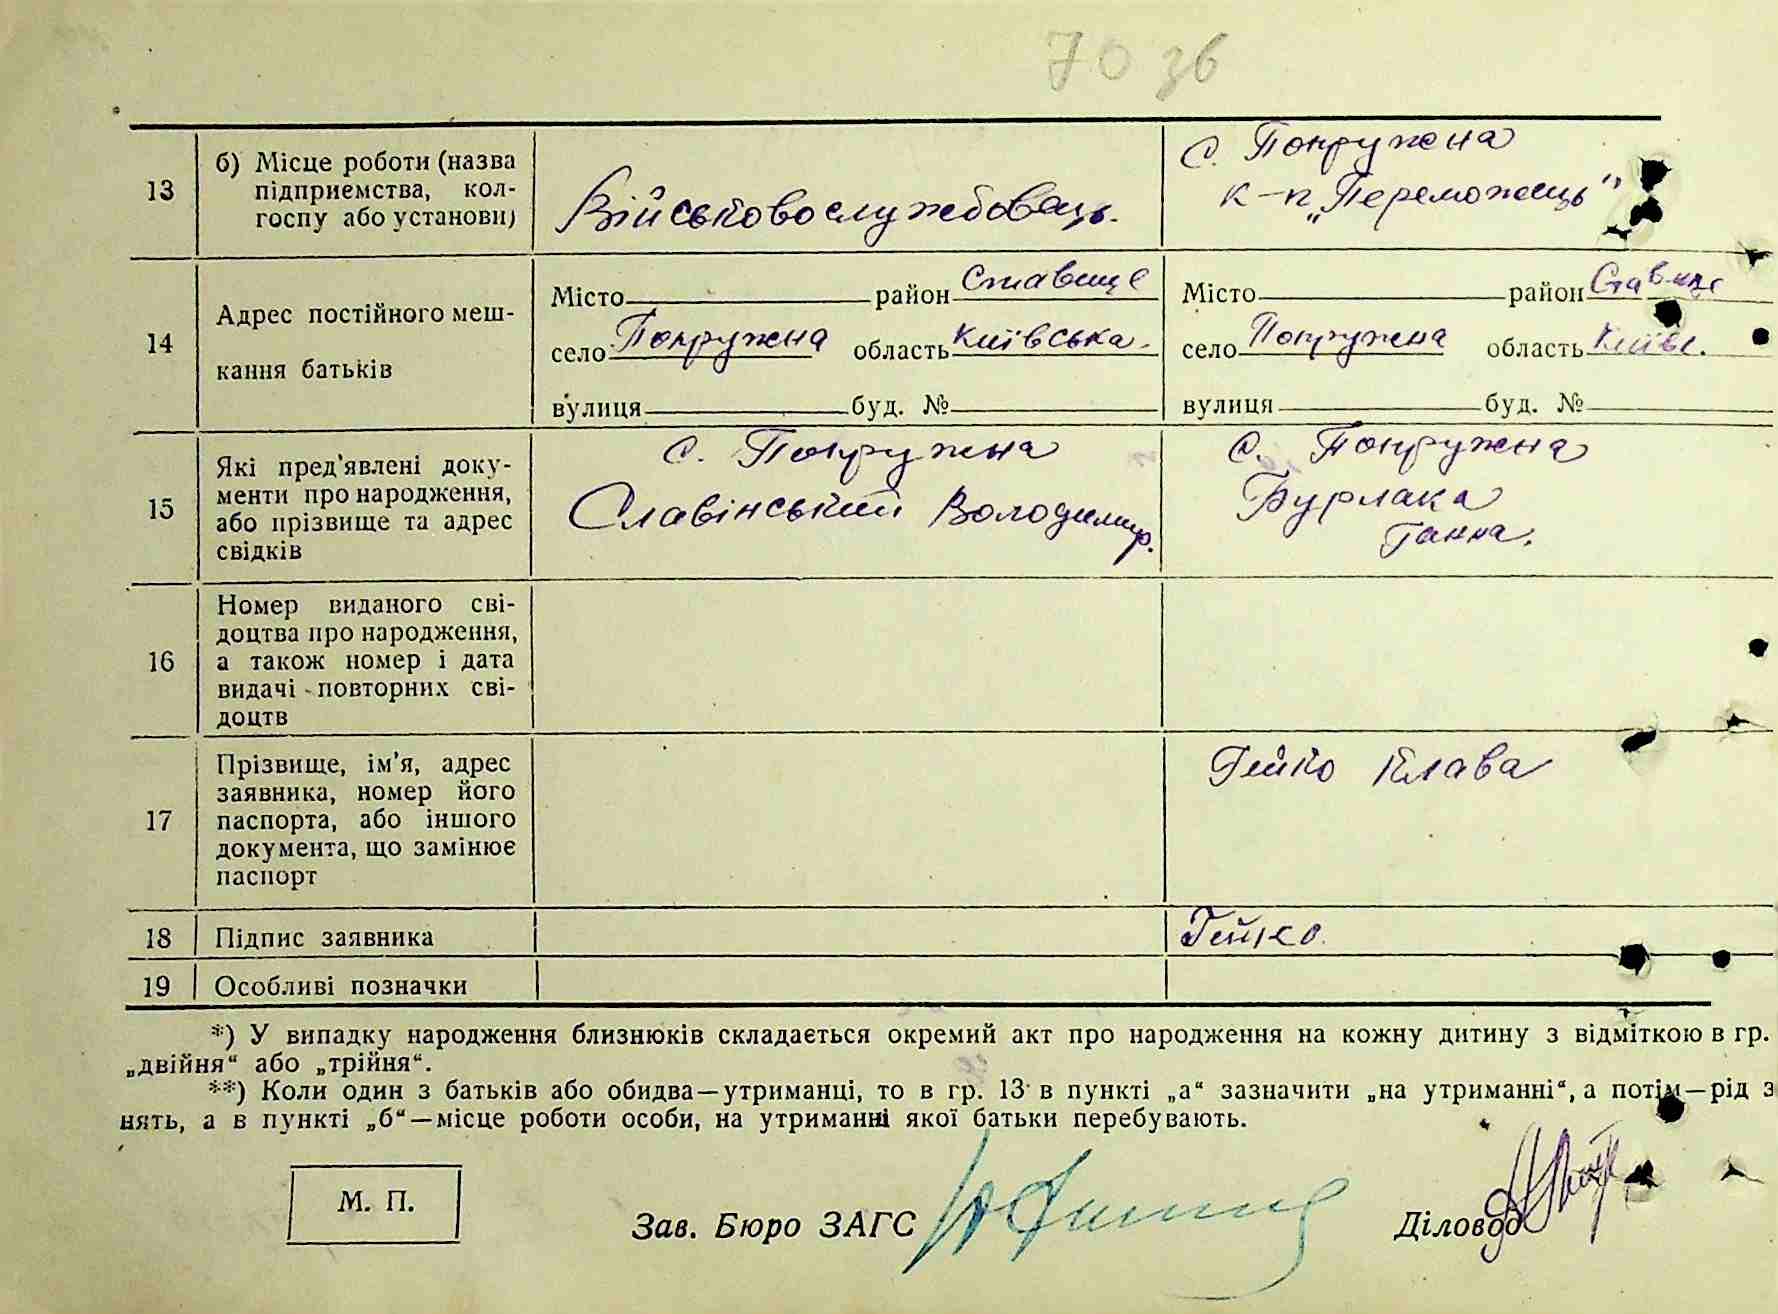 70 зв
13
б) Місце роботи (назва
підприємства, кол-
госпу або установи)
Військовослужбовець.
с. Попружена
к-п „Переможець"
14
Адрес постійного меш-
кання батьків
Місто район Ставище
село Попружна область Київська.
вулиця буд. №
Місто район Ставище
село Попружена область Київс.
вулиця буд. №
15
Які пред'явлені доку-
менти про народження,
або прізвище та адрес
свідків
с. Попружна
Славінський Володимир.
с. Попружна
Бурлака
Ганна.
16
Номер виданого сві-
доцтва про народження,
а також номер і дата
видачі повторних сві-
доцтв
17
Прізвище, ім'я, адрес
заявника, номер його
паспорта, або іншого
документа, що замінює
паспорт
Гейко Клава
18
Підпис заявника
Гейко.
19
Особливі позначки
*) У випадку народження близнюків складається окремий акт про народження на кожну дитину з відміткою в гр.
„двійня“ або „трійня“.
**) Коли один з батьків або обидва—утриманці, то в гр. 13 в пункті „а“ зазначити „на утриманні“, а потім—рід з
нять, а в пункті „б“—місце роботи особи, на утриманні якої батьки перебувають.
М. П.
Зав. Бюро ЗАГС
Діловод